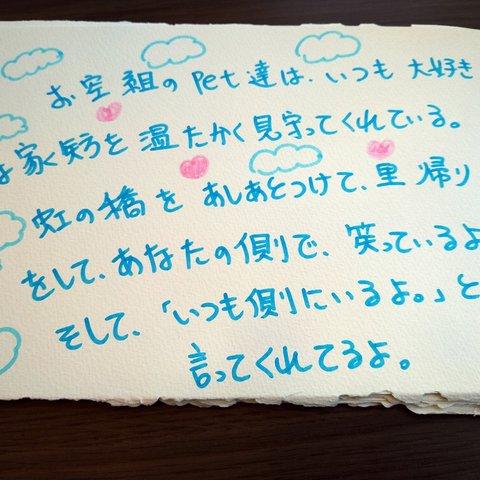 お空組のPet達は、いつも大好き
な家族を温たかく見守ってくれている。
虹の橋をあしあとつけて、里帰り
をして、あなたの側で、笑っているよ
そして、「いつも側にいるよ。」と
言ってくれてるよ。